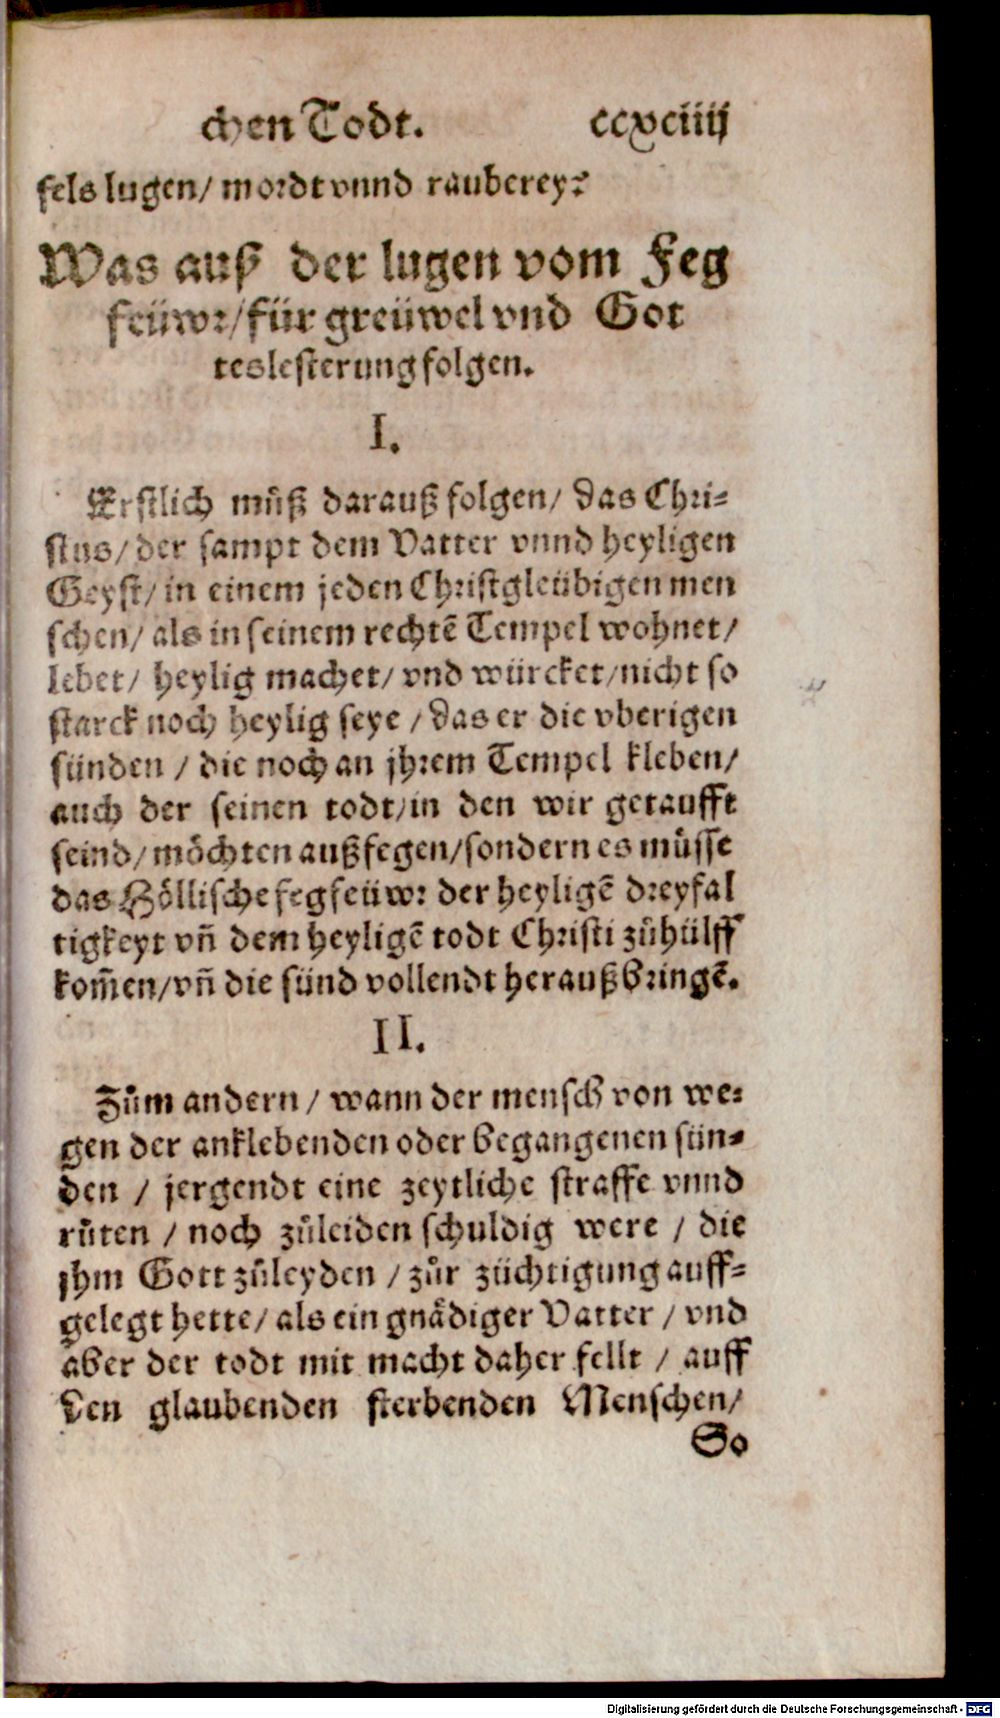 chen Todt. ccxciiij
fels lugen/ mordt vnnd rauberey?
Was auß der lugen vom Feg
feüwr/ für greüwel vnd Got
teslesterung folgen.
I.
Erstlich můß darauß folgen/ das Chri-
stus/ der sampt dem Vatter vnnd heyligen
Geyst/ in einem jeden Christgleübigen men
schen/ als in seinem rechtē Tempel wohnet/
lebet/ heylig machet/ vnd würcket/ nicht so
starck noch heylig seye / das er die vberigen
sünden / die noch an jhrem Tempel kleben/
auch der seinen todt/ in den wir getaufft
seind/ möchten außfegen/ sondern es müsse
das Höllische fegfeüwr der heyligē dreyfal
tigkeyt vñ dem heyligē todt Christi zůhülff
kom̃en/ vñ die sünd vollendt heraußbringē.
II.
Zům andern / wann der mensch von we-
gen der anklebenden oder begangenen sün-
den / jergendt eine zeytliche straffe vnnd
růten / noch zůleiden schuldig were / die
jhm Gott zůleyden / zůr züchtigung auff-
gelegt hette/ als ein gnädiger Vatter / vnd
aber der todt mit macht daher fellt / auff
den glaubenden sterbenden Menschen/
So
Digitalisierung gefördert durch die Deutsche Forschungsgemeinschaft - DFG